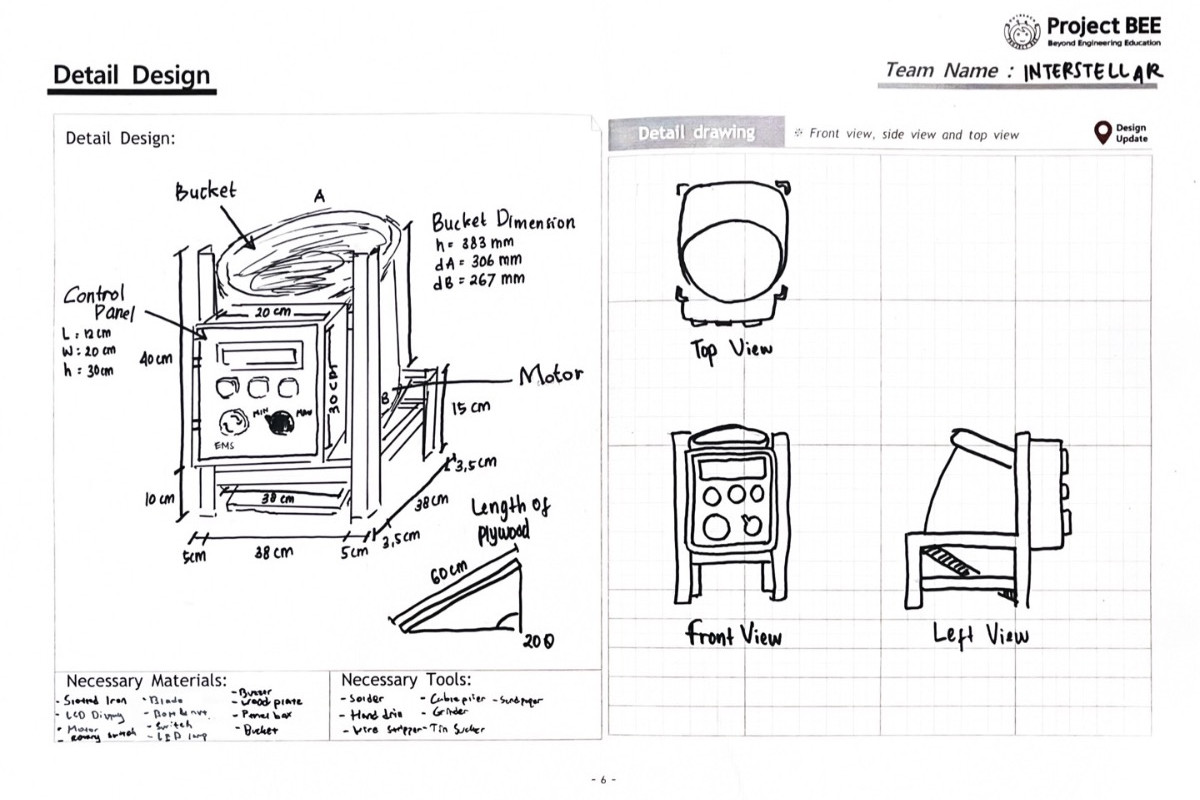 Project BEE
Beyond Engineering Education
Detail Design
Team Name : INTERSTELLAR
Detail Design:
Bucket
A
Bucket Dimension
h= 383 mm
dA = 306 mm
dB = 267 mm
Control
Panel
L : 12 cm
W : 20 cm
h : 30cm
20 cm
40 cm
30 cm
MIN
MAX
EMS
B
Motor
15 cm
3,5cm
38 cm
10 cm
38 cm
5cm
38 cm
5cm
3,5cm
Length of
plywood
60 cm
20
Necessary Materials:
- Slotted Iron
- LCD Display
- Motor
- Rotary switch
- Blade
- Bolt & nut
- Switch
- LED lamp
- Buzzer
- Wood plate
- Panel box
- Bucket
Necessary Tools:
- Solder
- Hand drill
- Wire stripper
- Grinder
- Tin Sucker
- Sandpaper
Detail drawing
※ Front view, side view and top view
Design
Update
Top View
Front View
Left View
- 6 -